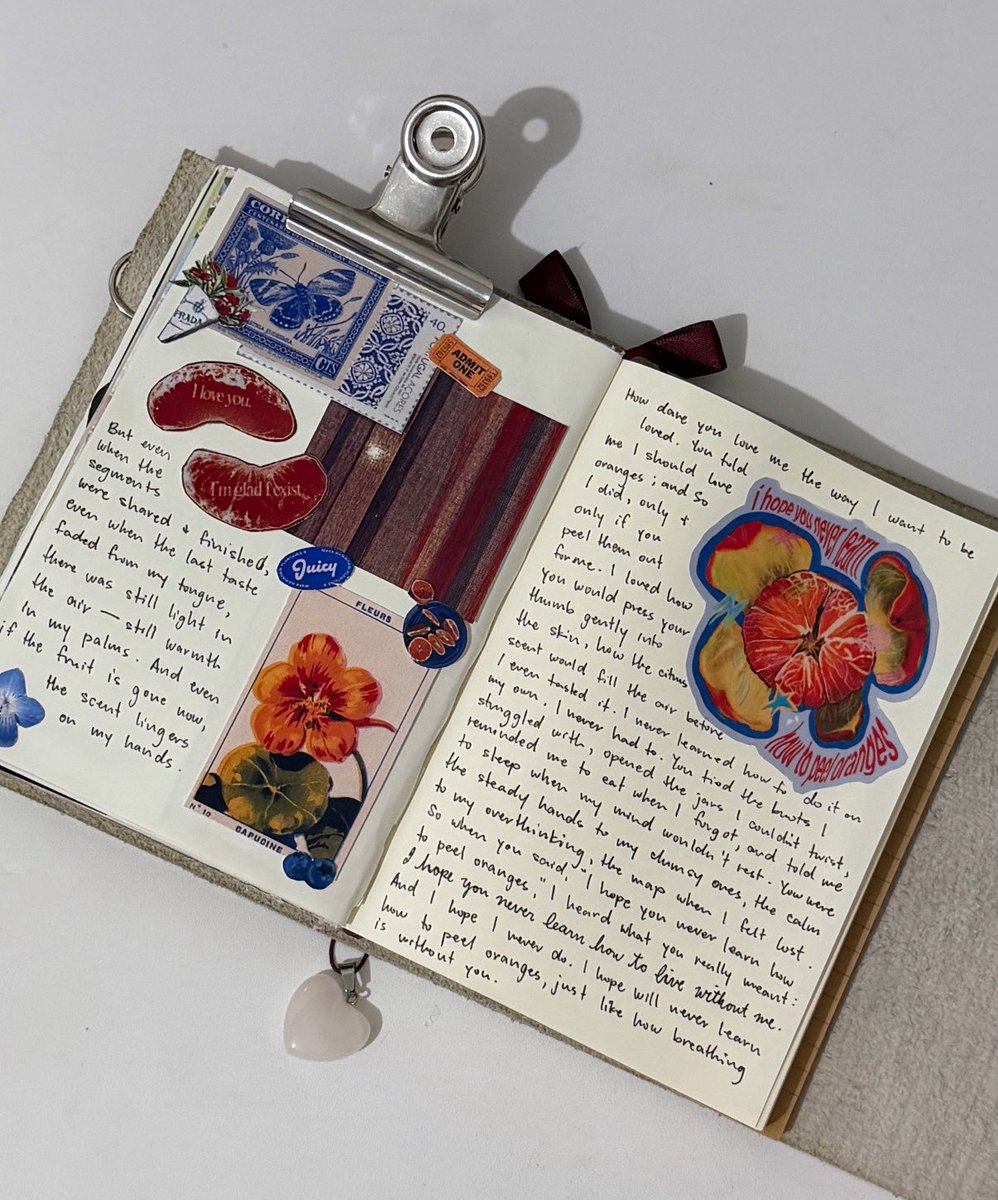 CENTENARIO
40.
PORTUGAL AÇORES
CTS
PRADA
ADMIT
ONE
I love you.
I'm glad I exist.
Juicy
But even
when the
segments
were shared & finished,
even when the last taste
faded from my tongue,
there was still light in
the air — still warmth
in my palms. And even
if the fruit is gone now,
the scent lingers
on
my hands.
FLEURS
N° 10 CAPUCINE
How dare you love me the way I want to be
loved. You told
me I should love
oranges; and so
I did, only &
only if you
peel them out
for me. I loved how
you would press your
thumb gently into
the skin, how the citrus
scent would fill the air before
I even tasted it. I never learned how to do it on
my own. I never had to. You tied the knots I
struggled with, opened the jars I couldn't twist,
reminded me to eat when I forgot, and told me
to sleep when my mind wouldn't rest. You were
the steady hands to my clumsy ones, the calm
to my overthinking, the map when I felt lost.
So when you said, "I hope you never learn how
to peel oranges," I heard what you really meant:
I hope you never learn how to live without me.
And I hope I never do. I hope will never learn
how to peel oranges, just like how breathing
is without you.
i hope you never learn
how to peel oranges